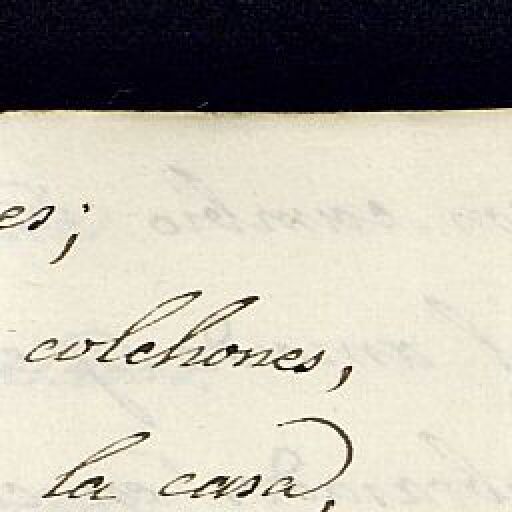 es;
colchones,
la casa,